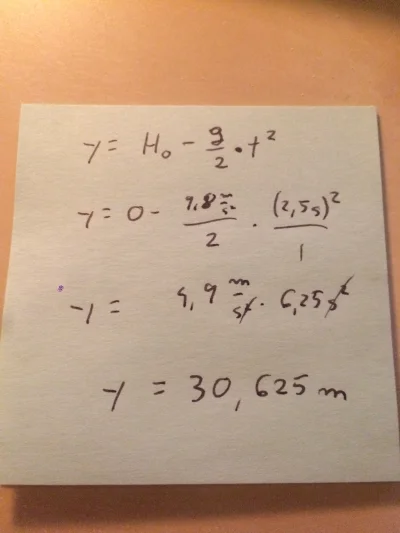 y = H₀ - g/2 · t²
y = 0 - 9,8 m/s² / 2 · (2,5s)² / 1
-y = 4,9 m/s² · 6,25s²
y = 30,625 m